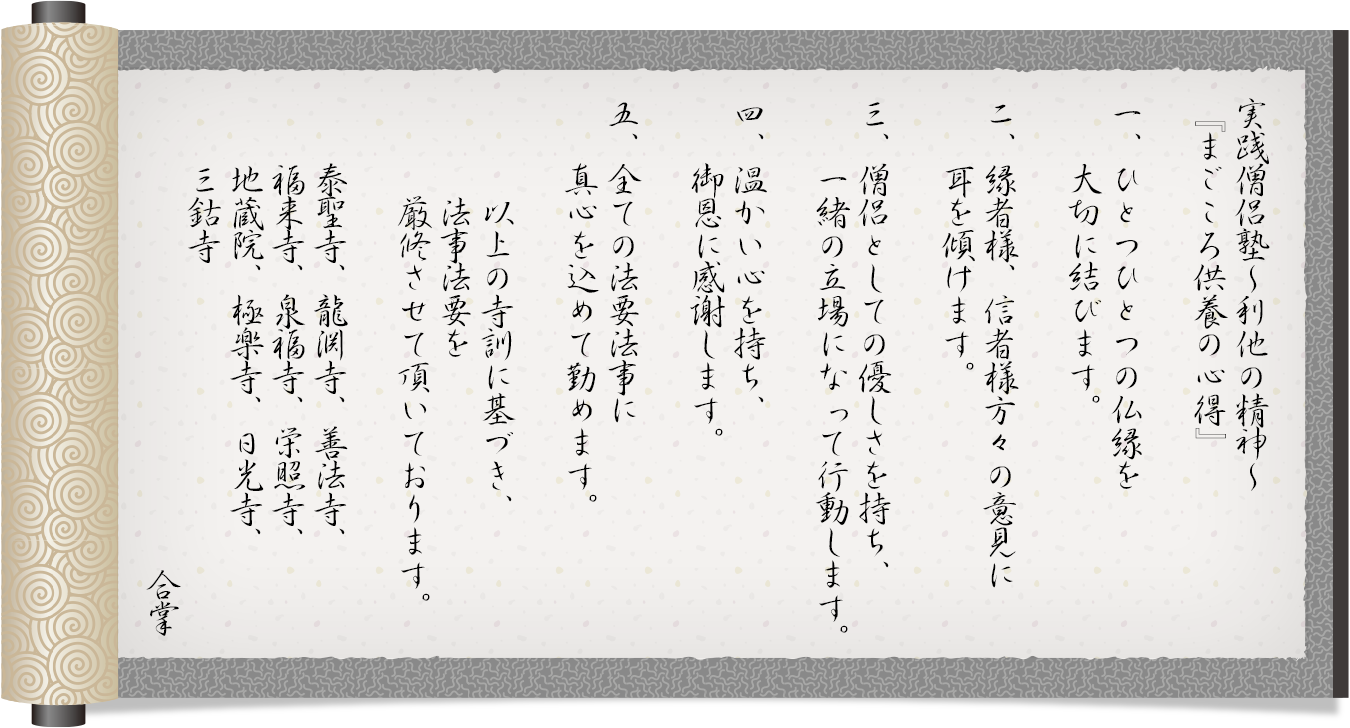 実践僧侶塾~利他の精神~
『まごころ供養の心得』
一、ひとつひとつの仏縁を
大切に結びます。
二、縁者様、信者様方々の意見に
耳を傾けます。
三、僧侶としての優しさを持ち、
一緒の立場になって行動します。
四、温かい心を持ち、
御恩に感謝します。
五、全ての法要法事に
真心を込めて勤めます。
以上の寺訓に基づき、
法事法要を
厳修させて頂いております。
泰聖寺、龍渕寺、善法寺、
福来寺、泉福寺、栄照寺、
地蔵院、極楽寺、日光寺、
三鈷寺
合掌